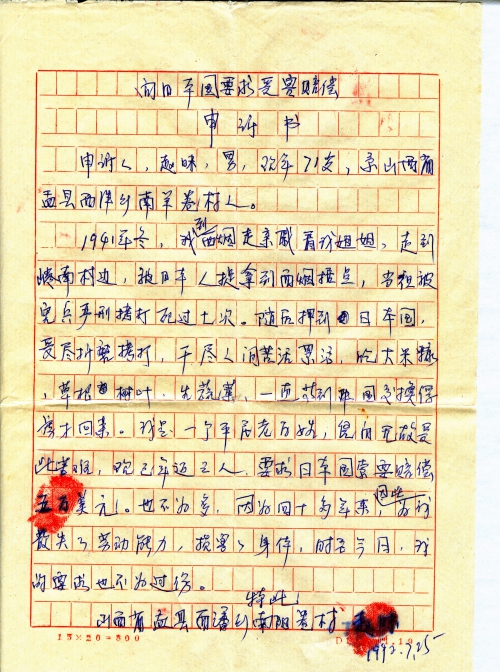 向日本国要求受害赔偿
申诉书
申诉人，赵味，男，现年71岁，系山西省
盂县西潘乡南羊卷村人。
1941年冬，我到西烟走亲戚看我姐姐，走到
村边，被日本人捉拿到西烟据点，当我被
宪兵严刑拷打死过七次。随后押到日本国，
受尽折磨拷打，干尽人间苦活累活，吃大米糠
、草根树叶、生蔬菜，一直到国交换俘
虏才回来。我是一个平民老百姓，无故受
此苦难，现已年迈之人，要求日本国索要赔偿
五百美元！。也不为多，因为四十多年来，因此为我
丧失了劳动能力，损害了身体，时至今日，我
的要求也不为过份。
特此！
山西省盂县西潘乡南阳卷村
1992.7.25
15×20=300